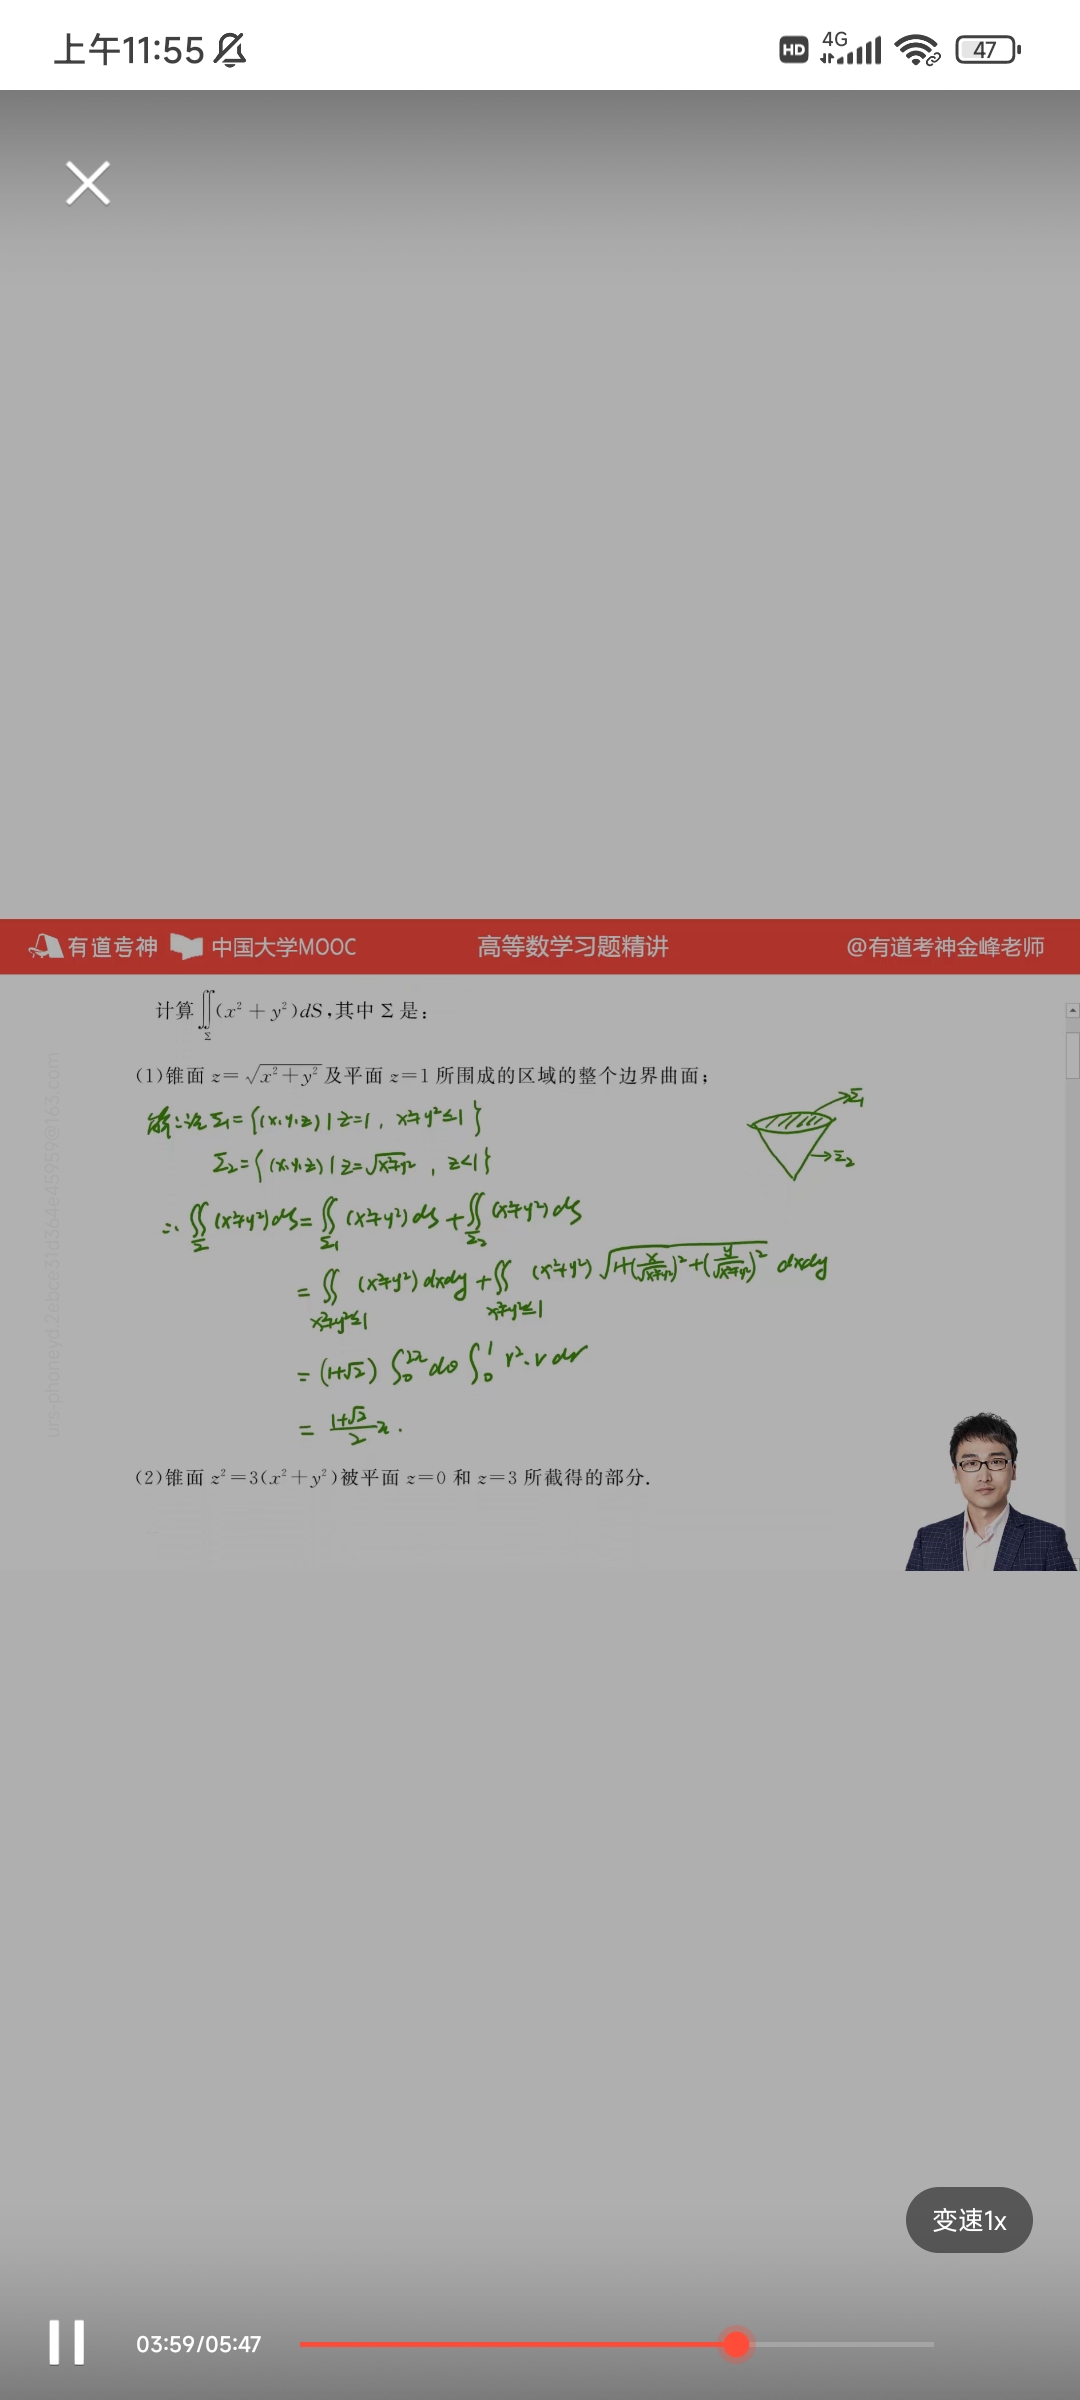 上午11:55 HD 4G 47
有道考神 中国大学MOOC 高等数学习题精讲 @有道考神金峰老师
计算∬_Σ(x²+y²)dS,其中Σ是:
(1)锥面 z=√(x²+y²) 及平面 z=1 所围成的区域的整个边界曲面;
解:设Σ₁={(x,y,z)|z=1, x²+y²≤1}
Σ₂={(x,y,z)|z=√(x²+y²), z<1}
→Σ₁
→Σ₂
∴∬_Σ(x²+y²)dS=∬_Σ₁(x²+y²)dS+∬_Σ₂(x²+y²)dS
=∬_{x²+y²≤1}(x²+y²)dxdy+∬_{x²+y²≤1}(x²+y²)√(1+(x/√(x²+y²))²+(y/√(x²+y²))²) dxdy
=(1+√2)∫₀^{2π}dθ∫₀¹r²·rdr
=(1+√2)/2 π.
(2)锥面 z²=3(x²+y²)被平面 z=0 和 z=3 所截得的部分.
变速1x
03:59/05:47